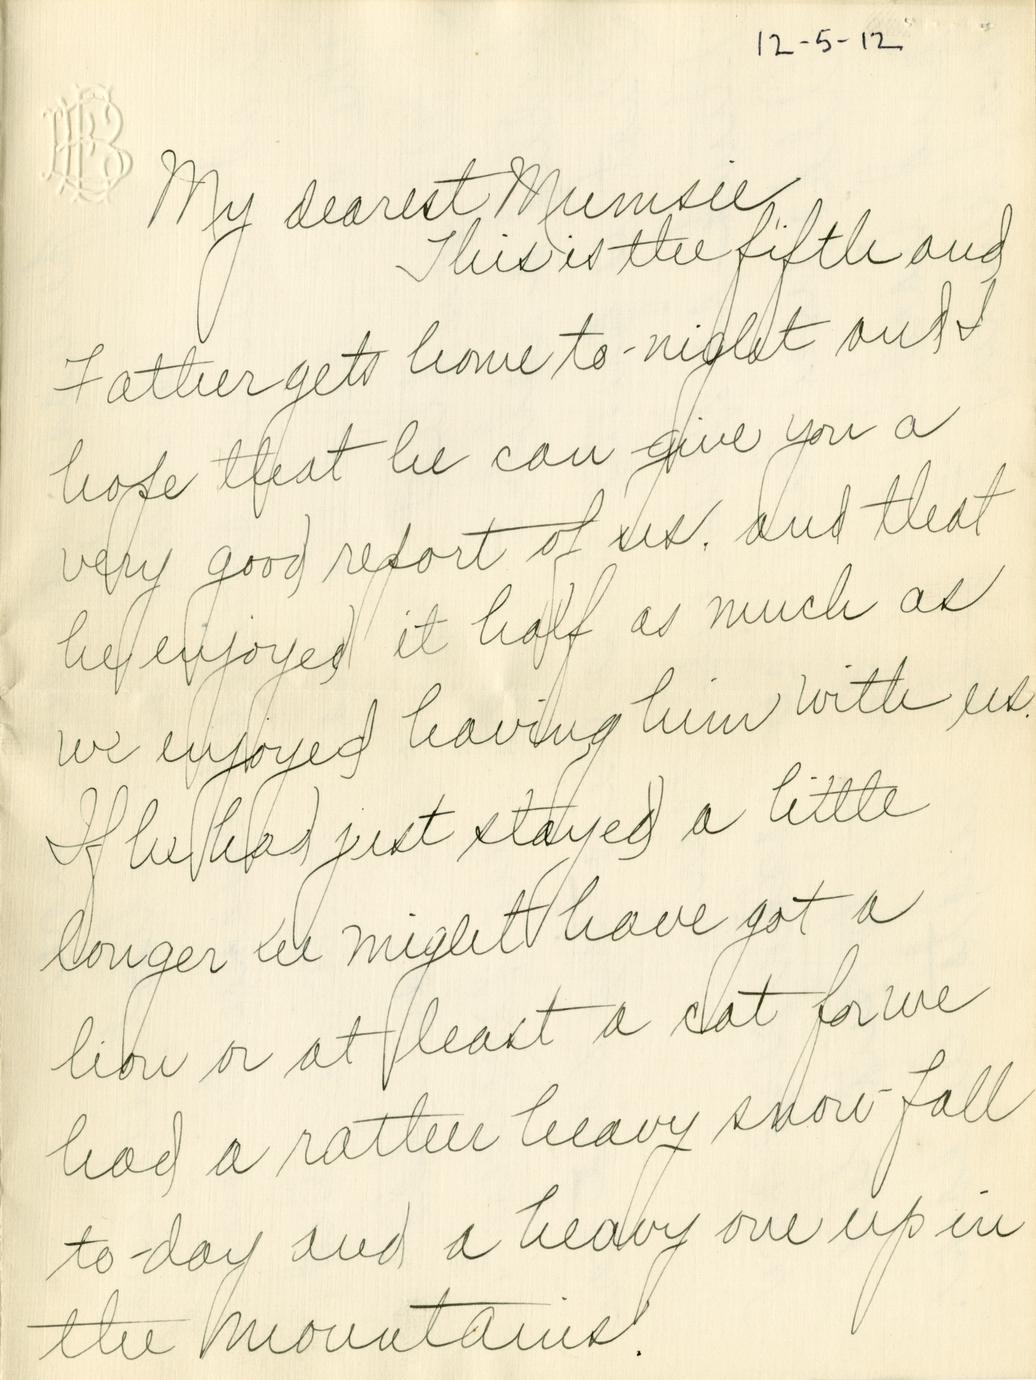 12-5-12
My dearest Mumsie,
This is the fifth and
Father gets home to-night and I
hope that he can give you a
very good report of us. and that
he enjoyed it half as much as
we enjoyed having him with us.
If he had just stayed a little
longer he might have got a
lion or at least a cat for we
had a rather heavy snow-fall
to-day and a heavy one up in
the mountains.